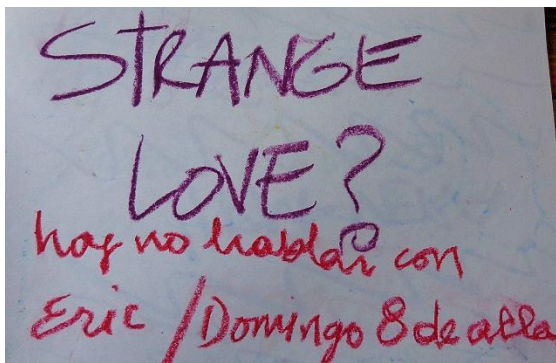 STRANGE
LOVE?
hoy no hablar con
Eric / Domingo 8 de